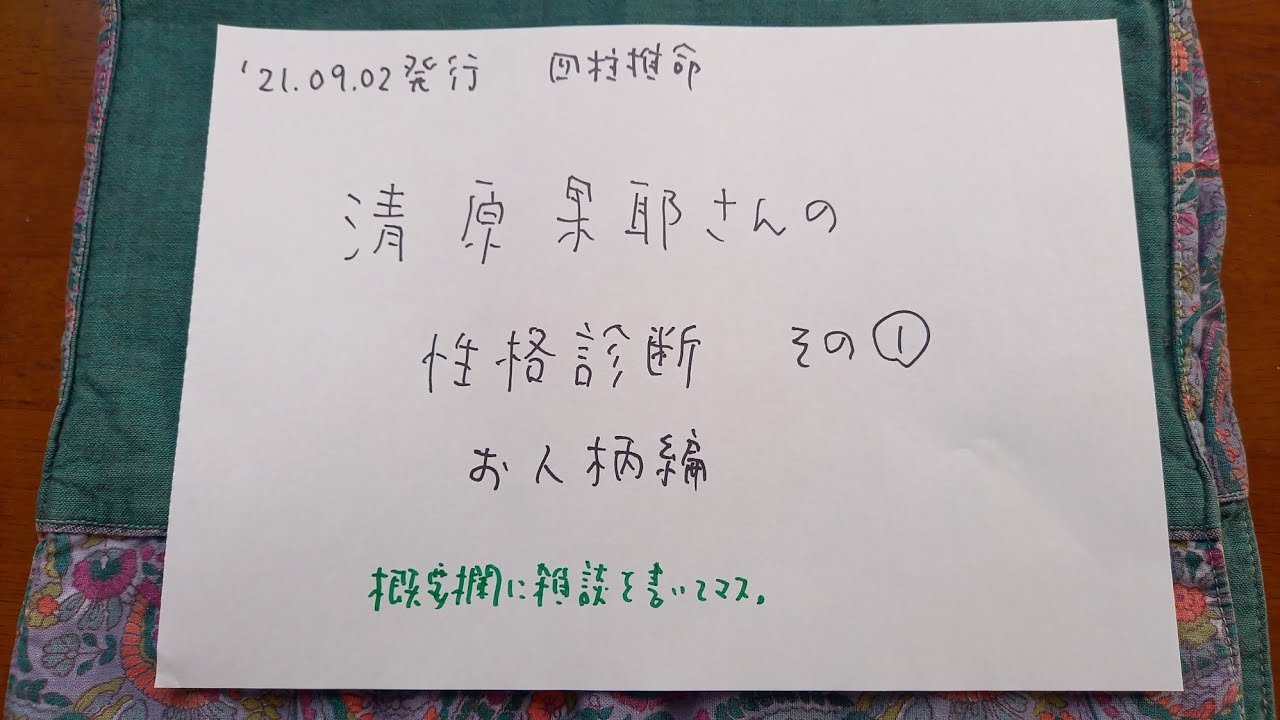 '21.09.02発行 四柱推命
清原果耶さんの
性格診断 その①
お人柄編
概要欄に雑談を書いてマス。